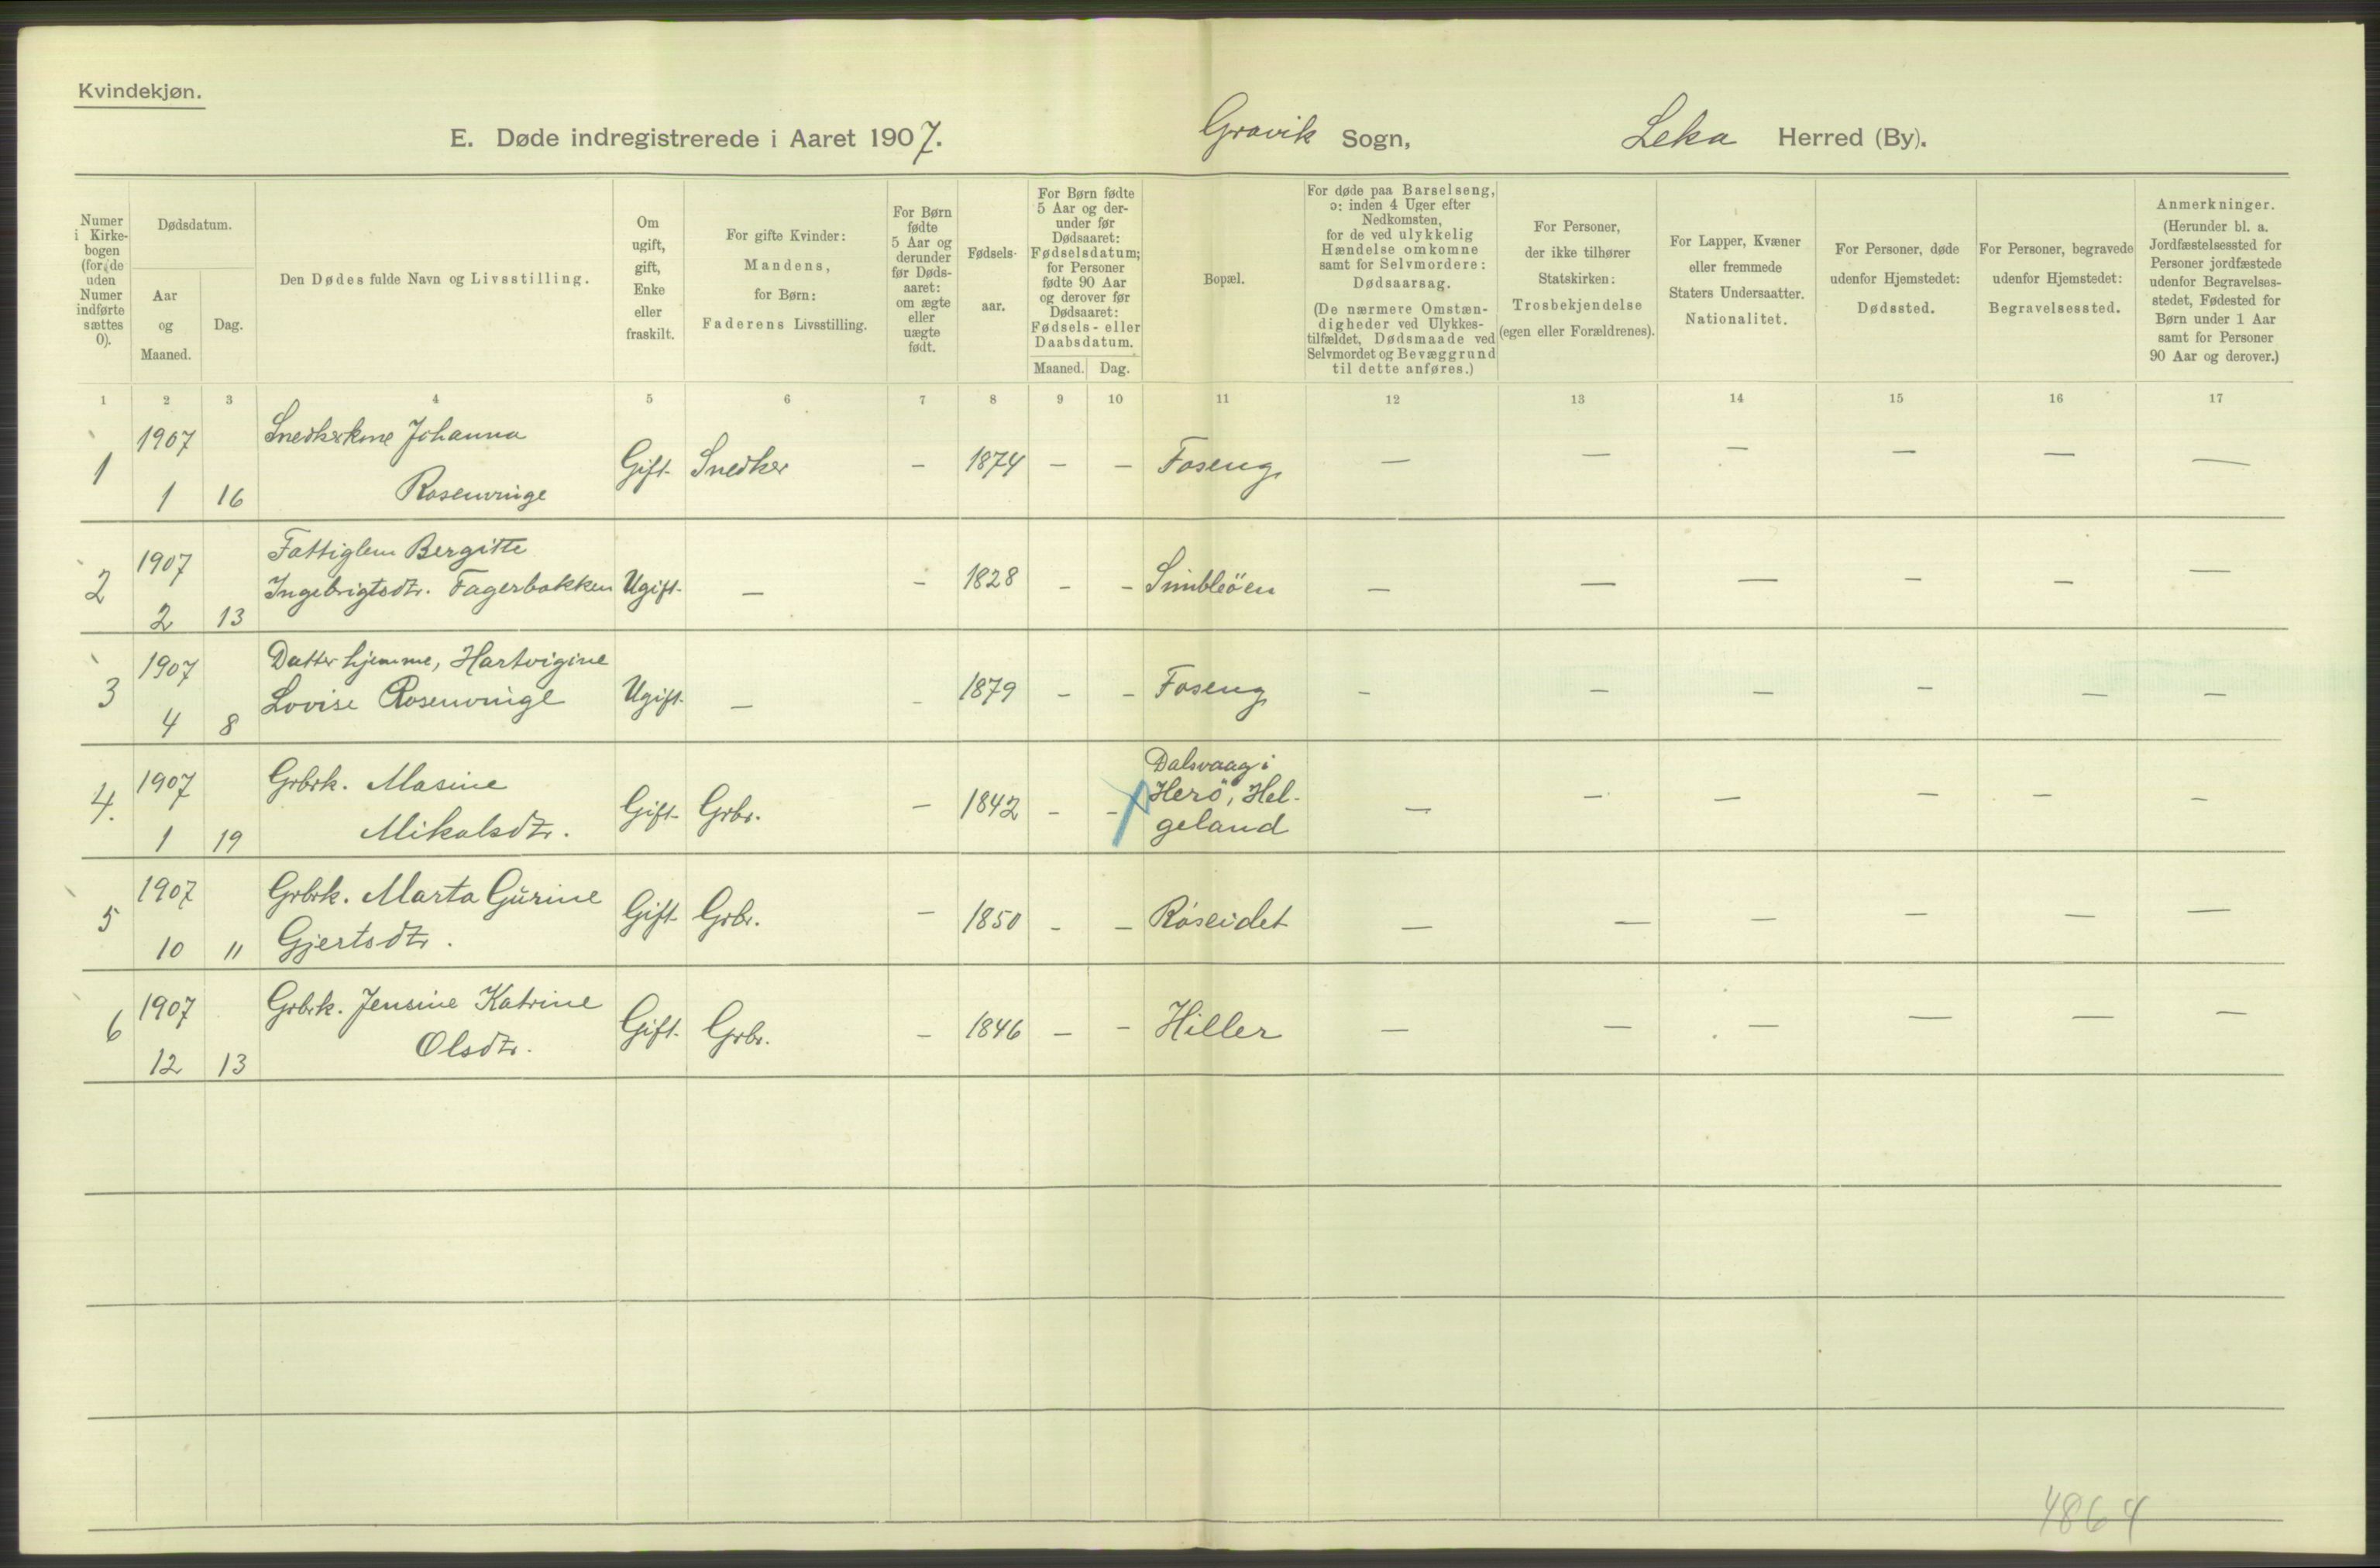 Kvindekjøn.
E. Døde indregistrerede i Aaret 1907. Gravik Sogn, Leka Herred (By).
Numer i Kirkebogen (for de uden Numer indførte sættes 0).
Dødsdatum.
Aar og Maaned.
Dag.
Den Dødes fulde Navn og Livsstilling.
Om ugift, gift, Enke eller fraskilt.
For gifte Kvinder: Mandens, for Børn: Faderens Livsstilling.
For Børn fødte 5 Aar og derunder før Dødsaaret: om ægte eller uægte født.
Fødselsaar.
For Børn fødte 5 Aar og derunder før Dødsaaret: Fødselsdatum; for Personer fødte 90 Aar og derover før Dødsaaret: Fødsels- eller Daabsdatum.
Maaned. Dag.
Bopæl.
For døde paa Barselseng, ɔ: inden 4 Uger efter Nedkomsten, for de ved ulykkelig Hændelse omkomne samt for Selvmordere: Dødsaarsag.
(De nærmere Omstændigheder ved Ulykkestilfældet, Dødsmaade ved Selvmordet og Bevæggrund til dette anføres.)
For Personer, der ikke tilhører Statskirken: Trosbekjendelse (egen eller Forældrenes).
For Lapper, Kvæner eller fremmede Staters Undersaatter. Nationalitet.
For Personer, døde udenfor Hjemstedet: Dødssted.
For Personer, begravede udenfor Hjemstedet: Begravelsessted.
Anmerkninger.
(Herunder bl. a. Jordfæstelsessted for Personer jordfæstede udenfor Begravelsesstedet, Fødested for Børn under 1 Aar samt for Personer 90 Aar og derover.)
1 2 3 4 5 6 7 8 9 10 11 12 13 14 15 16 17
1 1907 1 16 Snedkerkone Johanna Rosenvinge Gift Snedker – 1874 – – Foseng – – – – – –
2 1907 2 13 Fattiglem Bergitte Ingebrigtsdtr. Fagerbakken Ugift. – – 1828 – – Simbleöen – – – – – –
3 1907 4 8 Datter hjemme, Hartvigine Lovise Rosenvinge Ugift. – – 1879 – – Foseng – – – – – –
4. 1907 1 19 Grbrk. Masine Mikalsdtr. Gift Grbr. – 1842 – – Dalsvaag i Herö, Helgeland – – – – – –
5 1907 10 11 Grbrk. Marta Gurine Gjertsdtr. Gift Grbr. – 1850 – – Röseidet – – – – – –
6 1907 12 13 Grbrk. Jensine Katrine Olsdtr. Gift. Grbr. – 1846 – – Hiller – – – – – –
4864